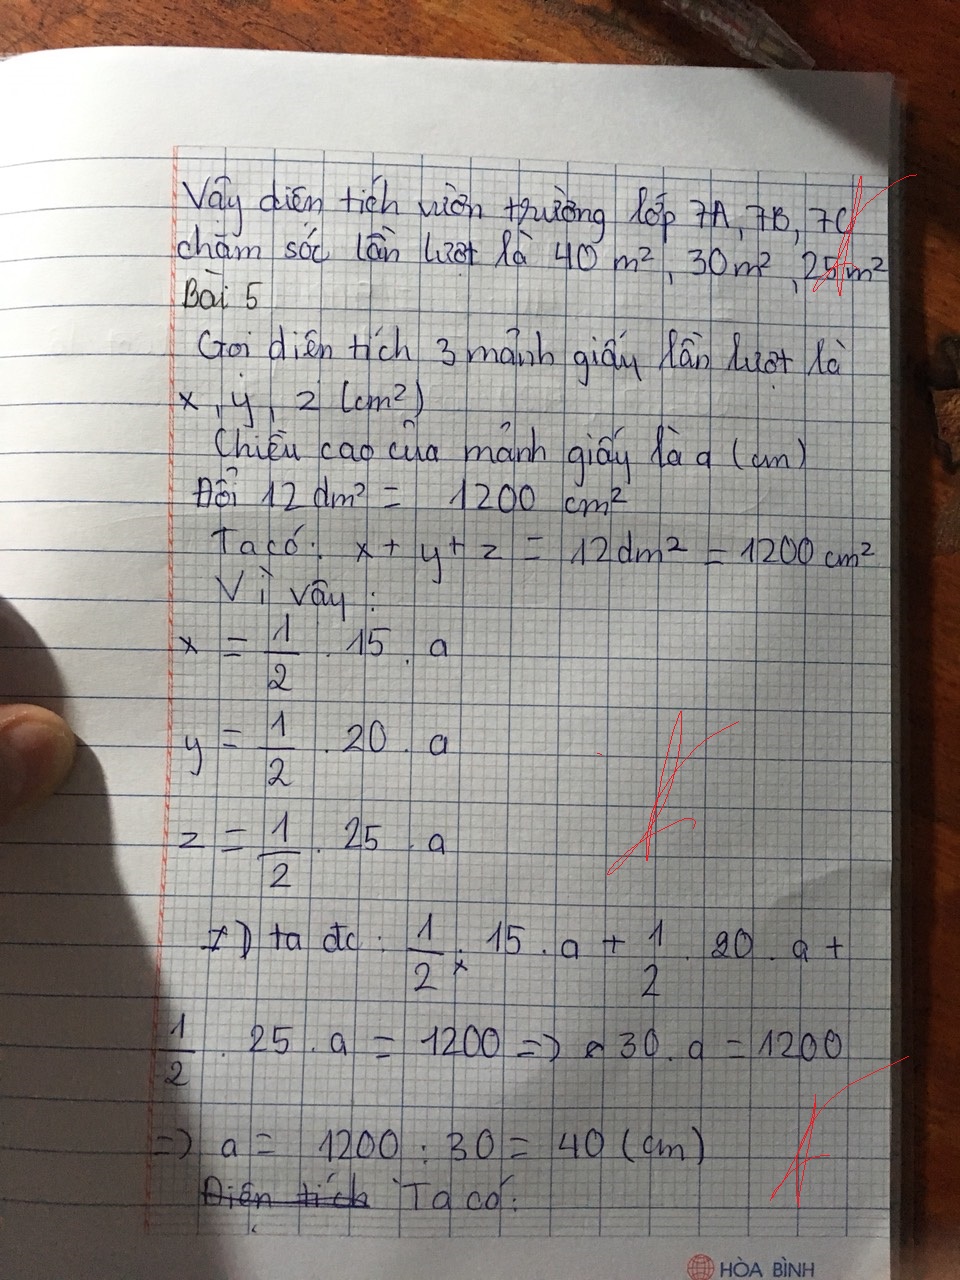 Vậy diện tích vườn trường lớp 7A, 7B, 7C
chăm sóc lần lượt là 40 m², 30m², 25m²
Bài 5
Gọi diện tích 3 mảnh giấy lần lượt là
x, y, z (cm²)
Chiều cao của mảnh giấy là a (cm)
Đổi 12 dm² = 1200 cm²
Ta có: x + y + z = 12dm² = 1200 cm²
Vì vậy:
x = 1/2 . 15 . a
y = 1/2 . 20 . a
z = 1/2 . 25 . a
=> ta đc: 1/2 . 15 . a + 1/2 . 20 . a +
1/2 . 25 . a = 1200 => 30 . a = 1200
=> a = 1200 : 30 = 40 (cm)
Diện tích Ta có:
HÒA BÌNH